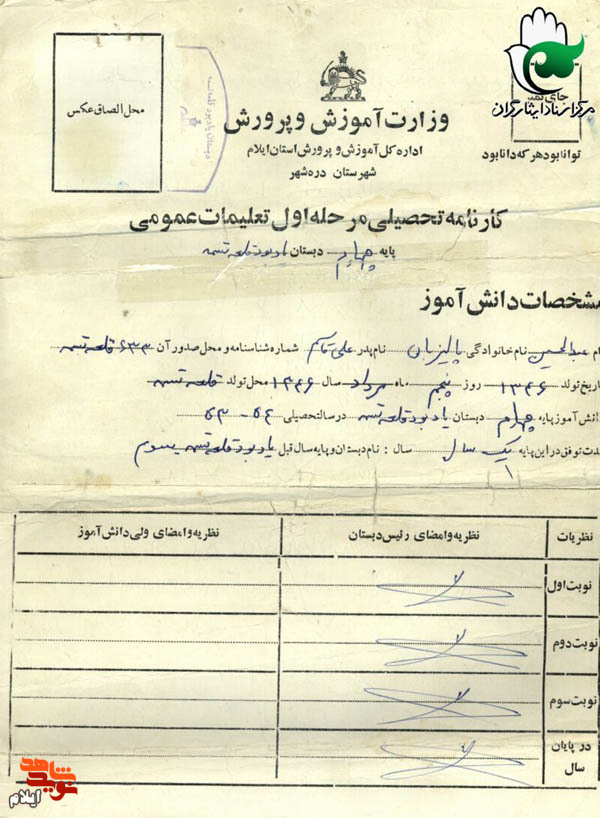 محل الصاق عکس
دبستان یادبود قلعه تسمه
جای تمبر
مرکز اسناد ایثارگران
توانا بود هر که دانا بود
وزارت آموزش و پرورش
اداره کل آموزش و پرورش استان ایلام
شهرستان دره شهر
کارنامه تحصیلی مرحله اول تعلیمات عمومی
پایه چهارم دبستان یادبود قلعه تسمه
مشخصات دانش آموز
نام عبدالحسین نام خانوادگی پالیزبان نام پدر علی قاسم شماره شناسنامه و محل صدور آن ۶۳۳ قلعه تسمه
تاریخ تولد ۱۳۴۶ روز پنجم ماه مرداد سال ۱۳۴۶ محل تولد قلعه تسمه
دانش آموز پایه چهارم دبستان یادبود قلعه تسمه در سال تحصیلی ۵۴ - ۵۳
مدت توقف در این پایه یک سال سال : نام دبستان و پایه سال قبل یادبود قلعه تسمه سوم
نظریات نظریه و امضای رئیس دبستان نظریه و امضای ولی دانش آموز
نوبت اول
نوبت دوم
نوبت سوم
در پایان
سال
نوید شاهد
ایلام